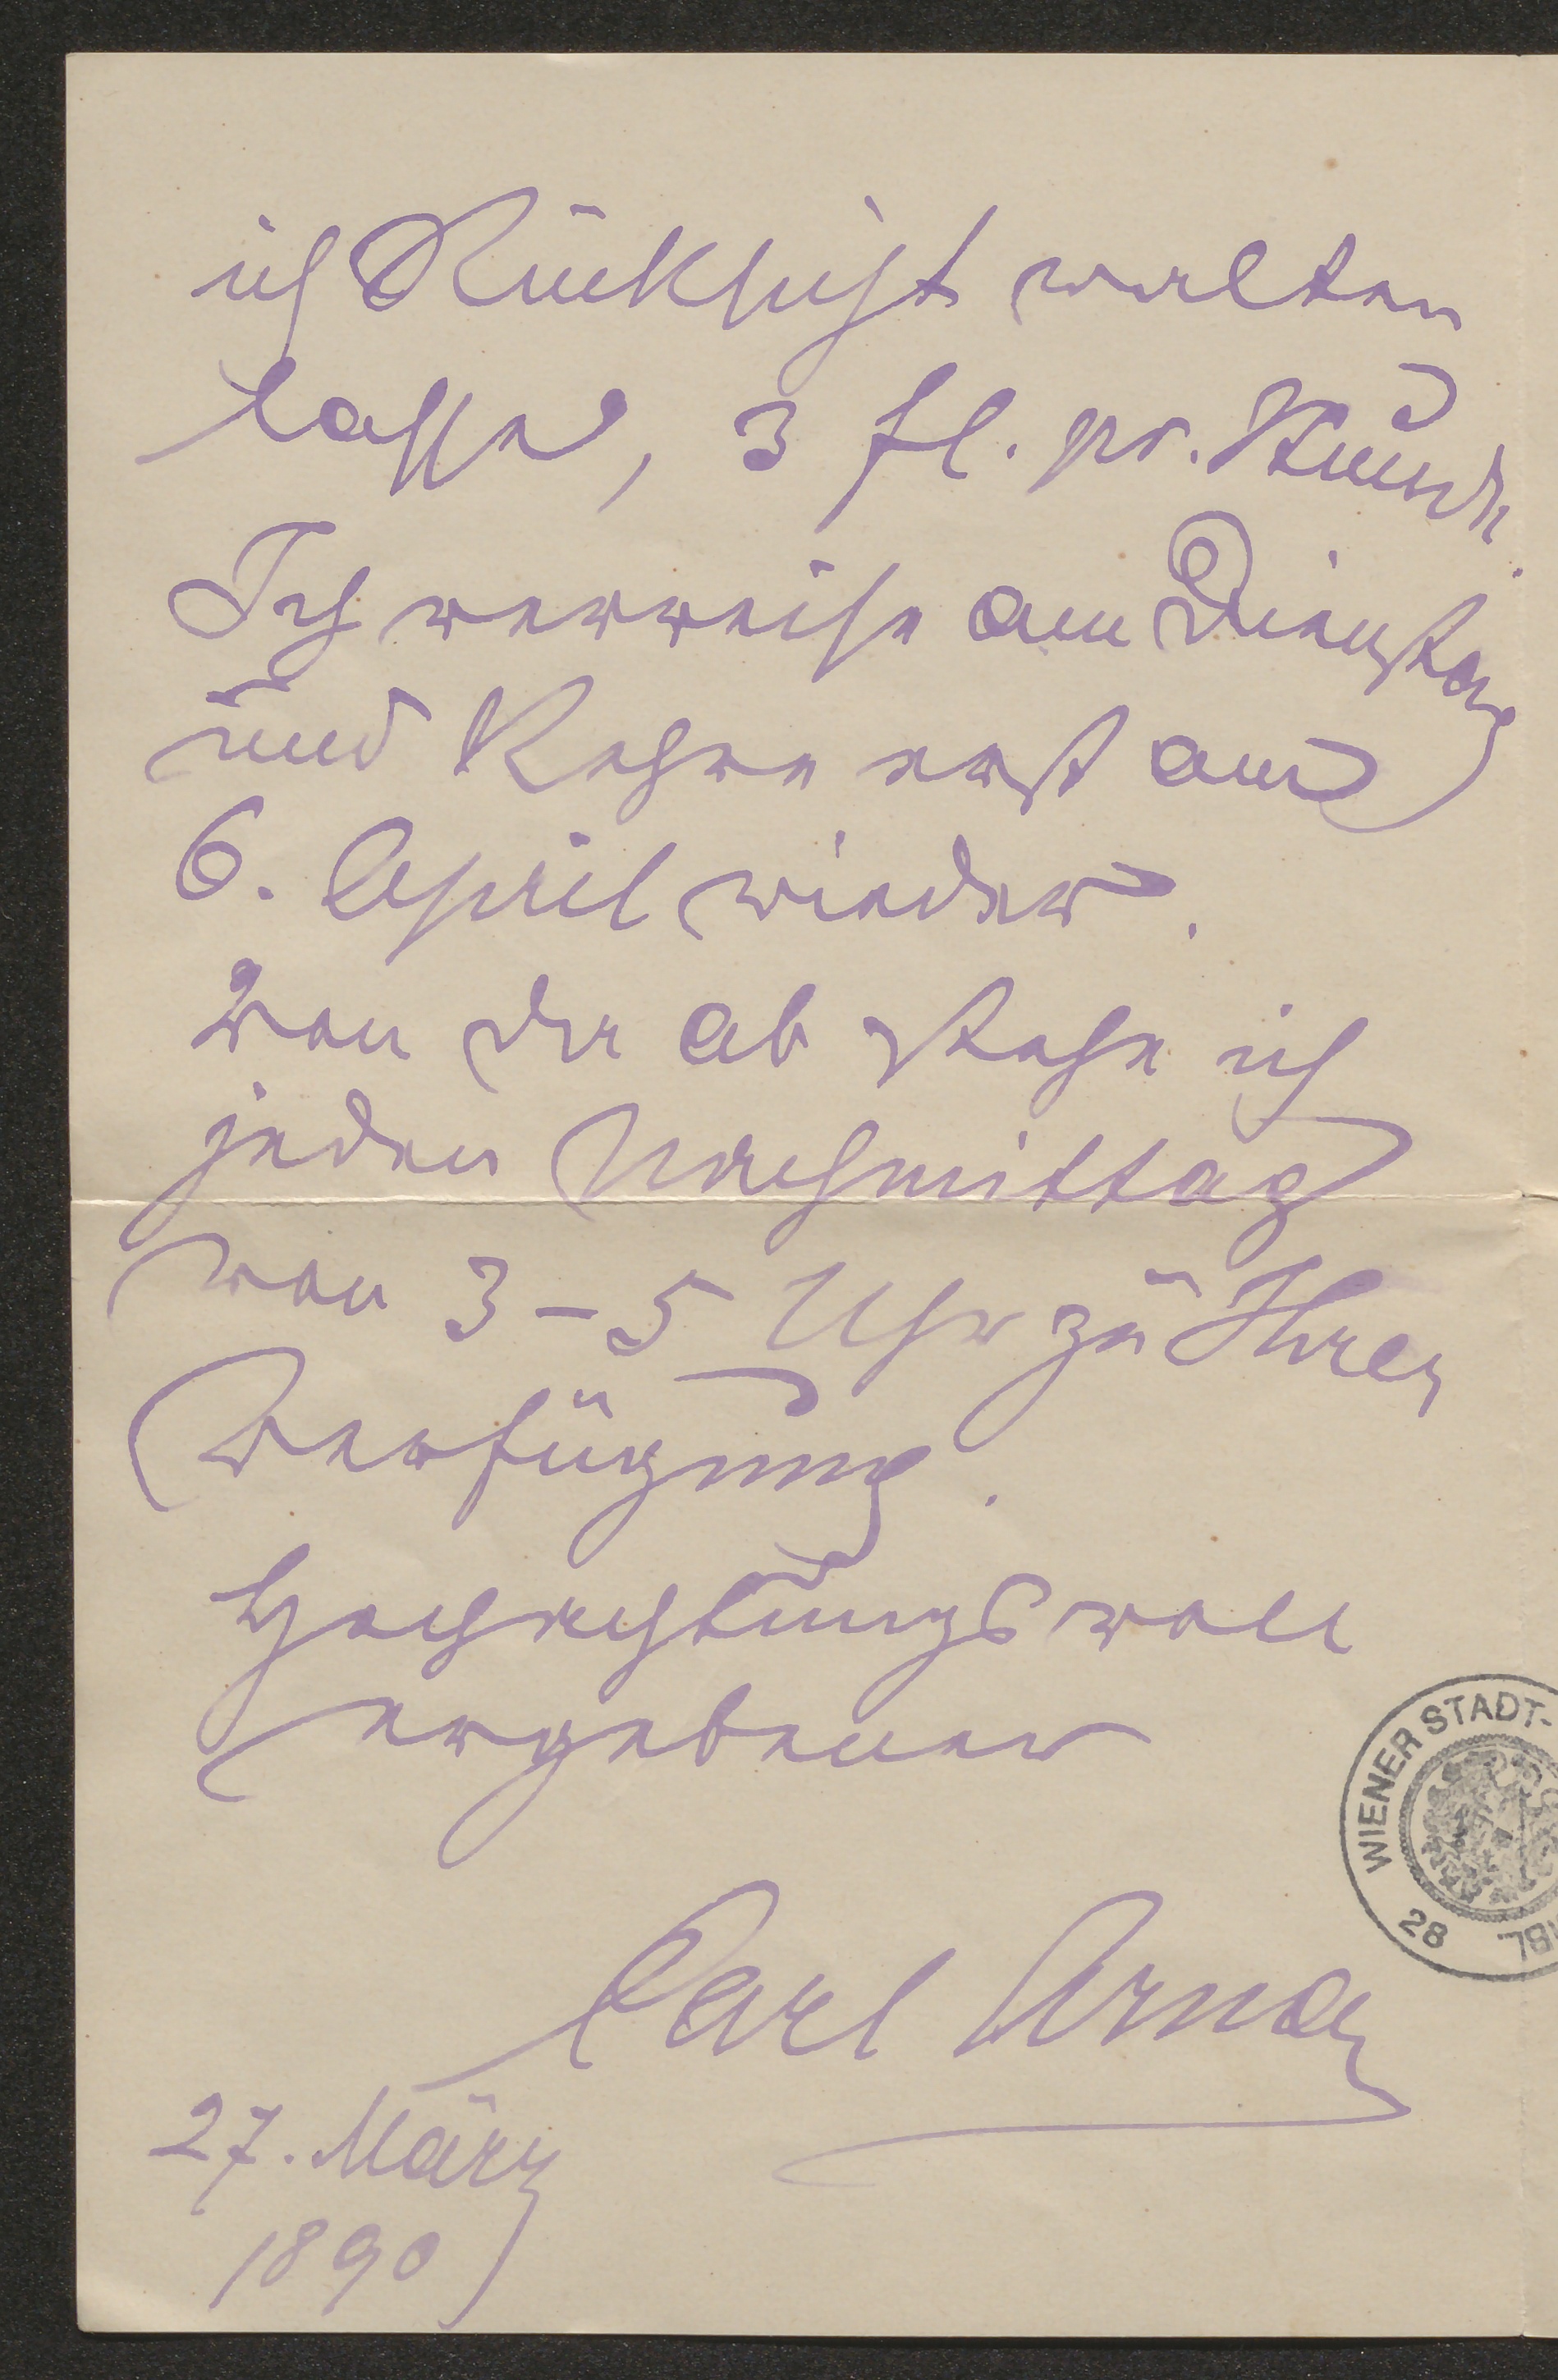 ich Rücksicht walten
lasse, 3 fl. pr. Stunde.
Ich verreise am Dienstag
und kehre erst am
6. April wieder.
Von da ab stehe ich
jeden Nachmittag
von 3-5 Uhr zu Ihrer
Verfügung.
Hochachtungsvoll
ergebener
Carl Arnau
27. März
1890
WIENER STADT-
28